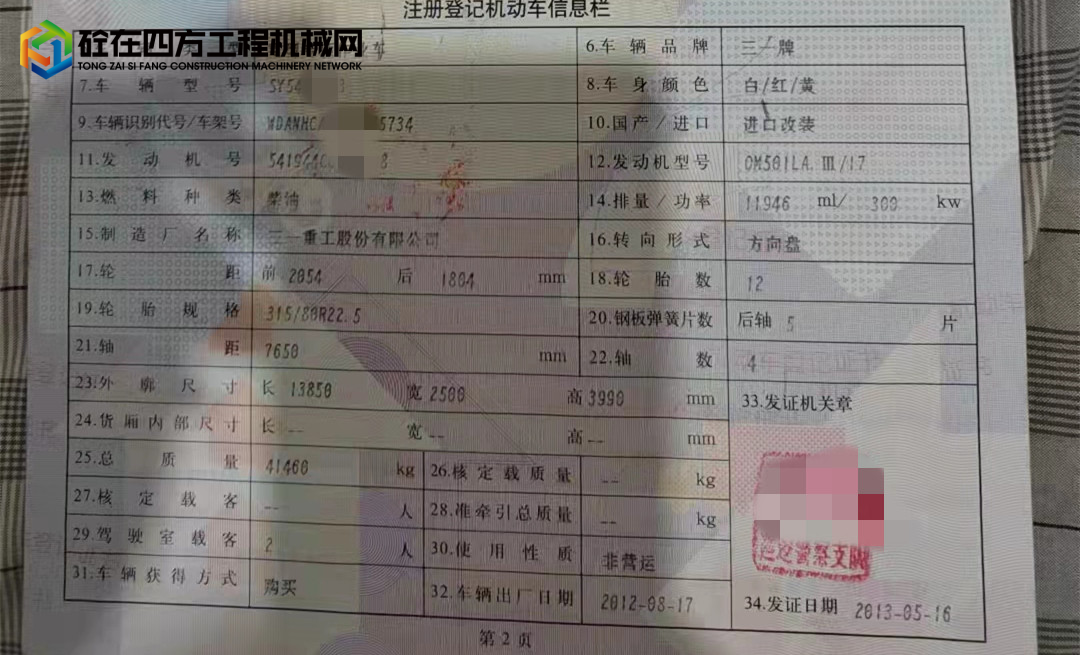 注册登记机动车信息栏
砼在四方工程机械网
TONG ZAI SI FANG CONSTRUCTION MACHINERY NETWORK
车 6.车辆品牌 三一牌
7.车辆型号 SY54 3 8.车身颜色 白/红/黄
9.车辆识别代号/车架号 WDANHC 5734 10.国产/进口 进口改装
11.发动机号 541944C 8 12.发动机型号 OM501LA.Ⅲ/17
13.燃料种类 柴油 14.排量/功率 11946 ml/ 300 kw
15.制造厂名称 三一重工股份有限公司 16.转向形式 方向盘
17.轮距 前 2054 后 1804 mm 18.轮胎数 12
19.轮胎规格 315/80R22.5 20.钢板弹簧片数 后轴 5 片
21.轴距 7650 mm 22.轴数 4
23.外廓尺寸 长 13850 宽 2500 高 3990 mm 33.发证机关章
24.货厢内部尺寸 长 -- 宽 -- 高 -- mm
25.总质量 41460 kg 26.核定载质量 -- kg
27.核定载客 -- 人 28.准牵引总质量 -- kg
29.驾驶室载客 2 人 30.使用性质 非营运
31.车辆获得方式 购买 32.车辆出厂日期 2012-08-17 34.发证日期 2013-05-16
警察支队
第2页